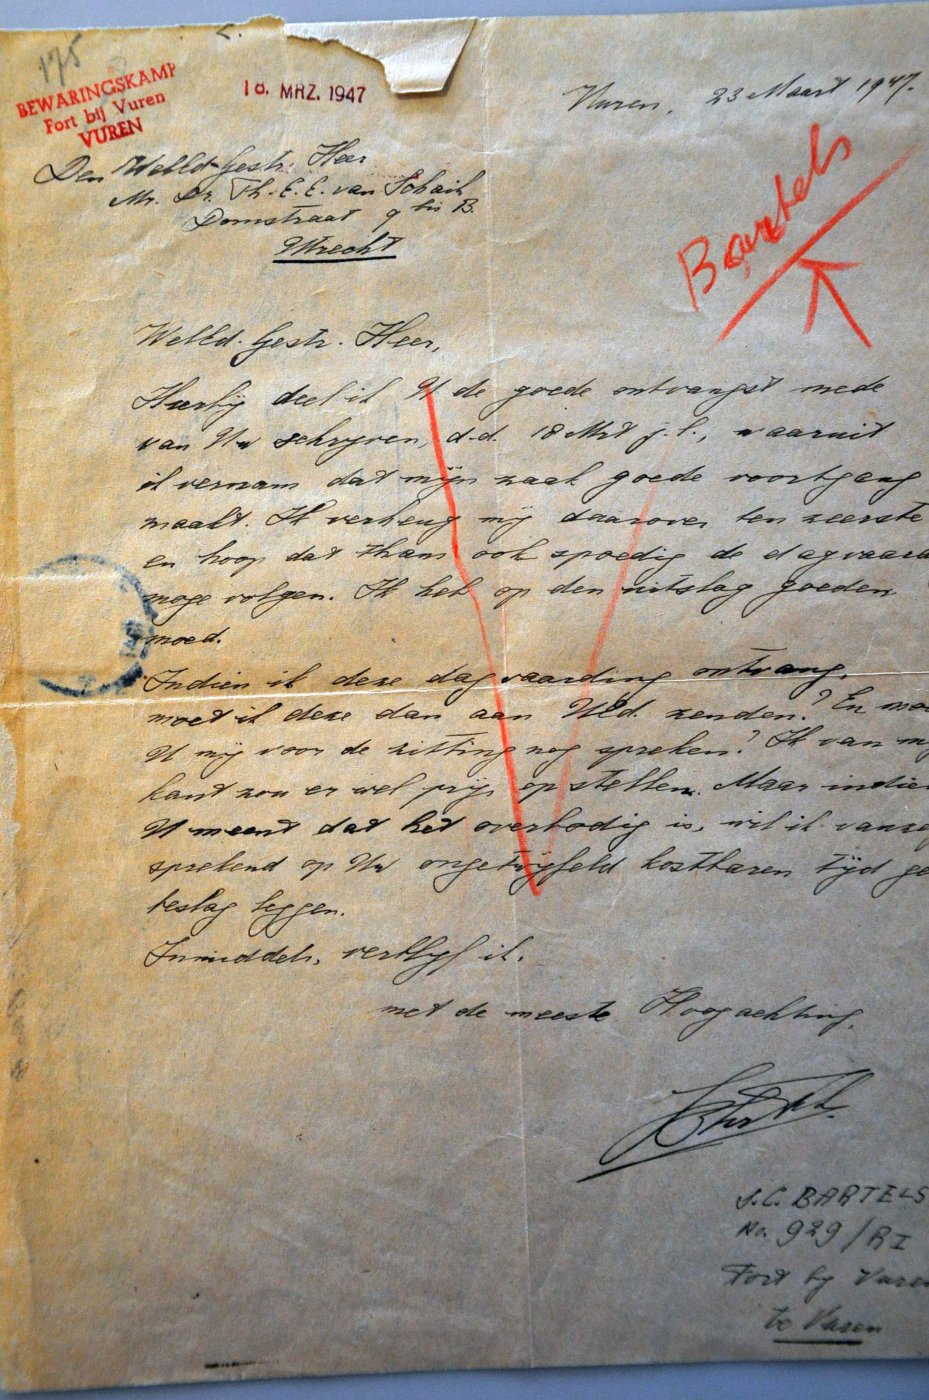 175
BEWARINGSKAMP
Fort bij Vuren
VUREN
18. MRZ. 1947
Vuren, 23 Maart 1947.
Den WelEd. Gestr. Heer
Mr. Dr. Th. E. E. van Schaik
Domstraat 9 bis B.
Utrecht
Bartels
WelEd. Gestr. Heer,
Hierbij deel ik U de goede ontvangst mede
van Uw schrijven, d.d. 18 Mrt j.l., waaruit
ik vernam dat mijn zaak goede voortgang
maakt. Ik verheug mij daarover ten zeerste
en hoop dat thans ook spoedig de dagvaard
moge volgen. Ik heb op den uitslag goeden
moed.
Indien ik deze dagvaarding ontvang,
moet ik deze dan aan UEd. zenden? En moe
U mij voor de zitting nog spreken? Ik van mij
kant zou er wel prijs op stellen. Maar indien
U meent dat het overbodig is, wil ik vanze
sprekend op Uw ongetwijfeld kostbaren tijd ge
beslag leggen.
Inmiddels, verblijf ik,
met de meeste Hoogachting,
J.C. BARTELS
No. 929 / RI
Fort bij Vuren
te Vuren